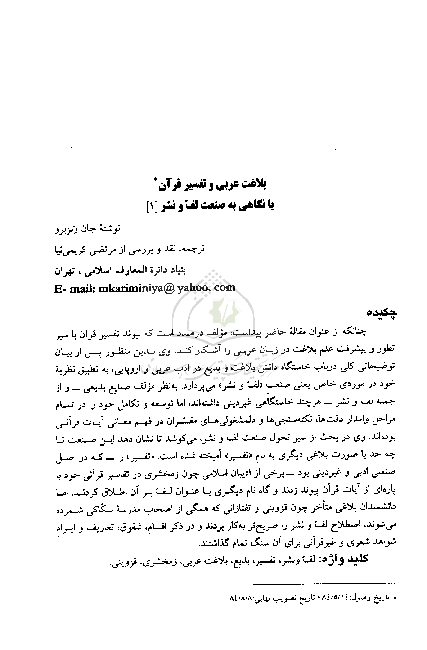 بلاغت عربی و تفسیر قرآن*
با نگاهی به صنعت لفّ و نشر [۱]
نوشتهٔ جان ونزبرو
ترجمه، نقد و بررسی از مرتضی کریمی‌نیا
بنیاد دائرة المعارف اسلامی ، تهران
E- mail: mkariminiya@ yahoo. com
چکیده
چنانکه از عنوان مقالهٔ حاضر پیداست، مؤلف درصدد است که پیوند تفسیر قرآن با سیر
تطور و پیشرفت علم بلاغت در زبان عربی را آشکار کند. وی بدین منظور پس از بیان
توضیحاتی کلی درباب خاستگاه دانش بلاغت و بدیع در ادب عربی و اروپایی، به تطبیق نظریهٔ
خود در موردی خاص یعنی صنعت «لفّ و نشر» می‌پردازد. به‌نظر مؤلف صنایع بدیعی ـ و از
جمله لف و نشر ـ هرچند خاستگاهی غیردینی داشته‌اند، اما توسعه و تکامل خود را در تمام
مراحل وامدار دقت‌ها، نکته‌سنجی‌ها و دلمشغولی‌های مفسّران در فهم معانی آیات قرآنی
بوده‌اند. وی در بحث از سیر تحول صنعت لف و نشر، می‌کوشد تا نشان دهد این صنعت تا
چه حد با صورت بلاغی دیگری به نام «تفسیر» آمیخته شده است. «تفسیر» را ـ که در اصل
صنعتی ادبی و غیردینی بود ـ برخی از ادیبان اسلامی چون زمخشری در تفاسیر قرآنی خود با
پاره‌ای از آیات قرآن پیوند زدند و گاه نام دیگری با عنوان لفّ بر آن اطلاق کردند. اما
دانشمندان بلاغی متأخر چون قزوینی و تفتازانی که همگی از اصحاب مدرسهٔ سکّاکی شمرده
می‌شوند، اصطلاح لفّ و نشر را صریح‌تر به‌کار بردند و در ذکر اقسام، شقوق، تعاریف و ایراد
شواهد شعری و غیرقرآنی برای آن سنگ تمام گذاشتند.
کلید واژه: لف‌ّونشر، تفسیر، بدیع، بلاغت عربی، زمخشری، قزوینی.
* تاریخ وصول: ۸۴/۵/۱۴؛ تاریخ تصویب نهایی: ۸۴/۸/۸